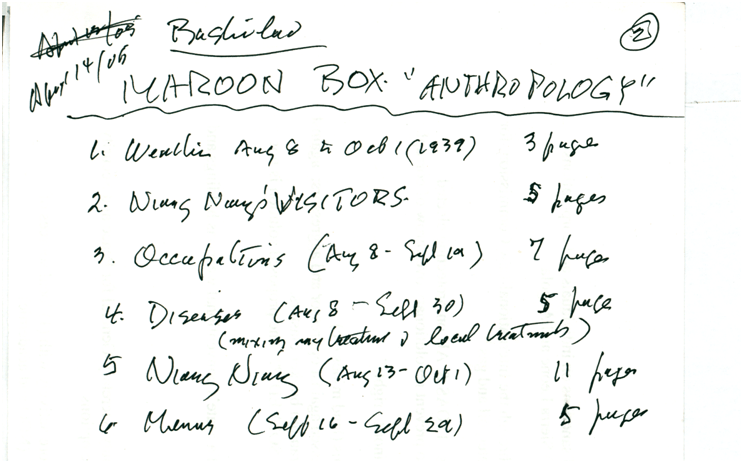 2
April 14/05
MAROON BOX. "ANTHROPOLOGY"
1. Weather Aug 8 to Oct 1 (1939) 3 pages
2. Niang Niang's VISITORS. 5 pages
3. Occupations (Aug 8 - Sept 19) 7 pages
4. Diseases (Aug 8 - Sept 30) 5 page
(mixing my treatment & local treatments)
5 Niang Niang (Aug 13 - Oct 1) 11 pages
6 Menus (Sept 16 - Sept 29) 5 pages